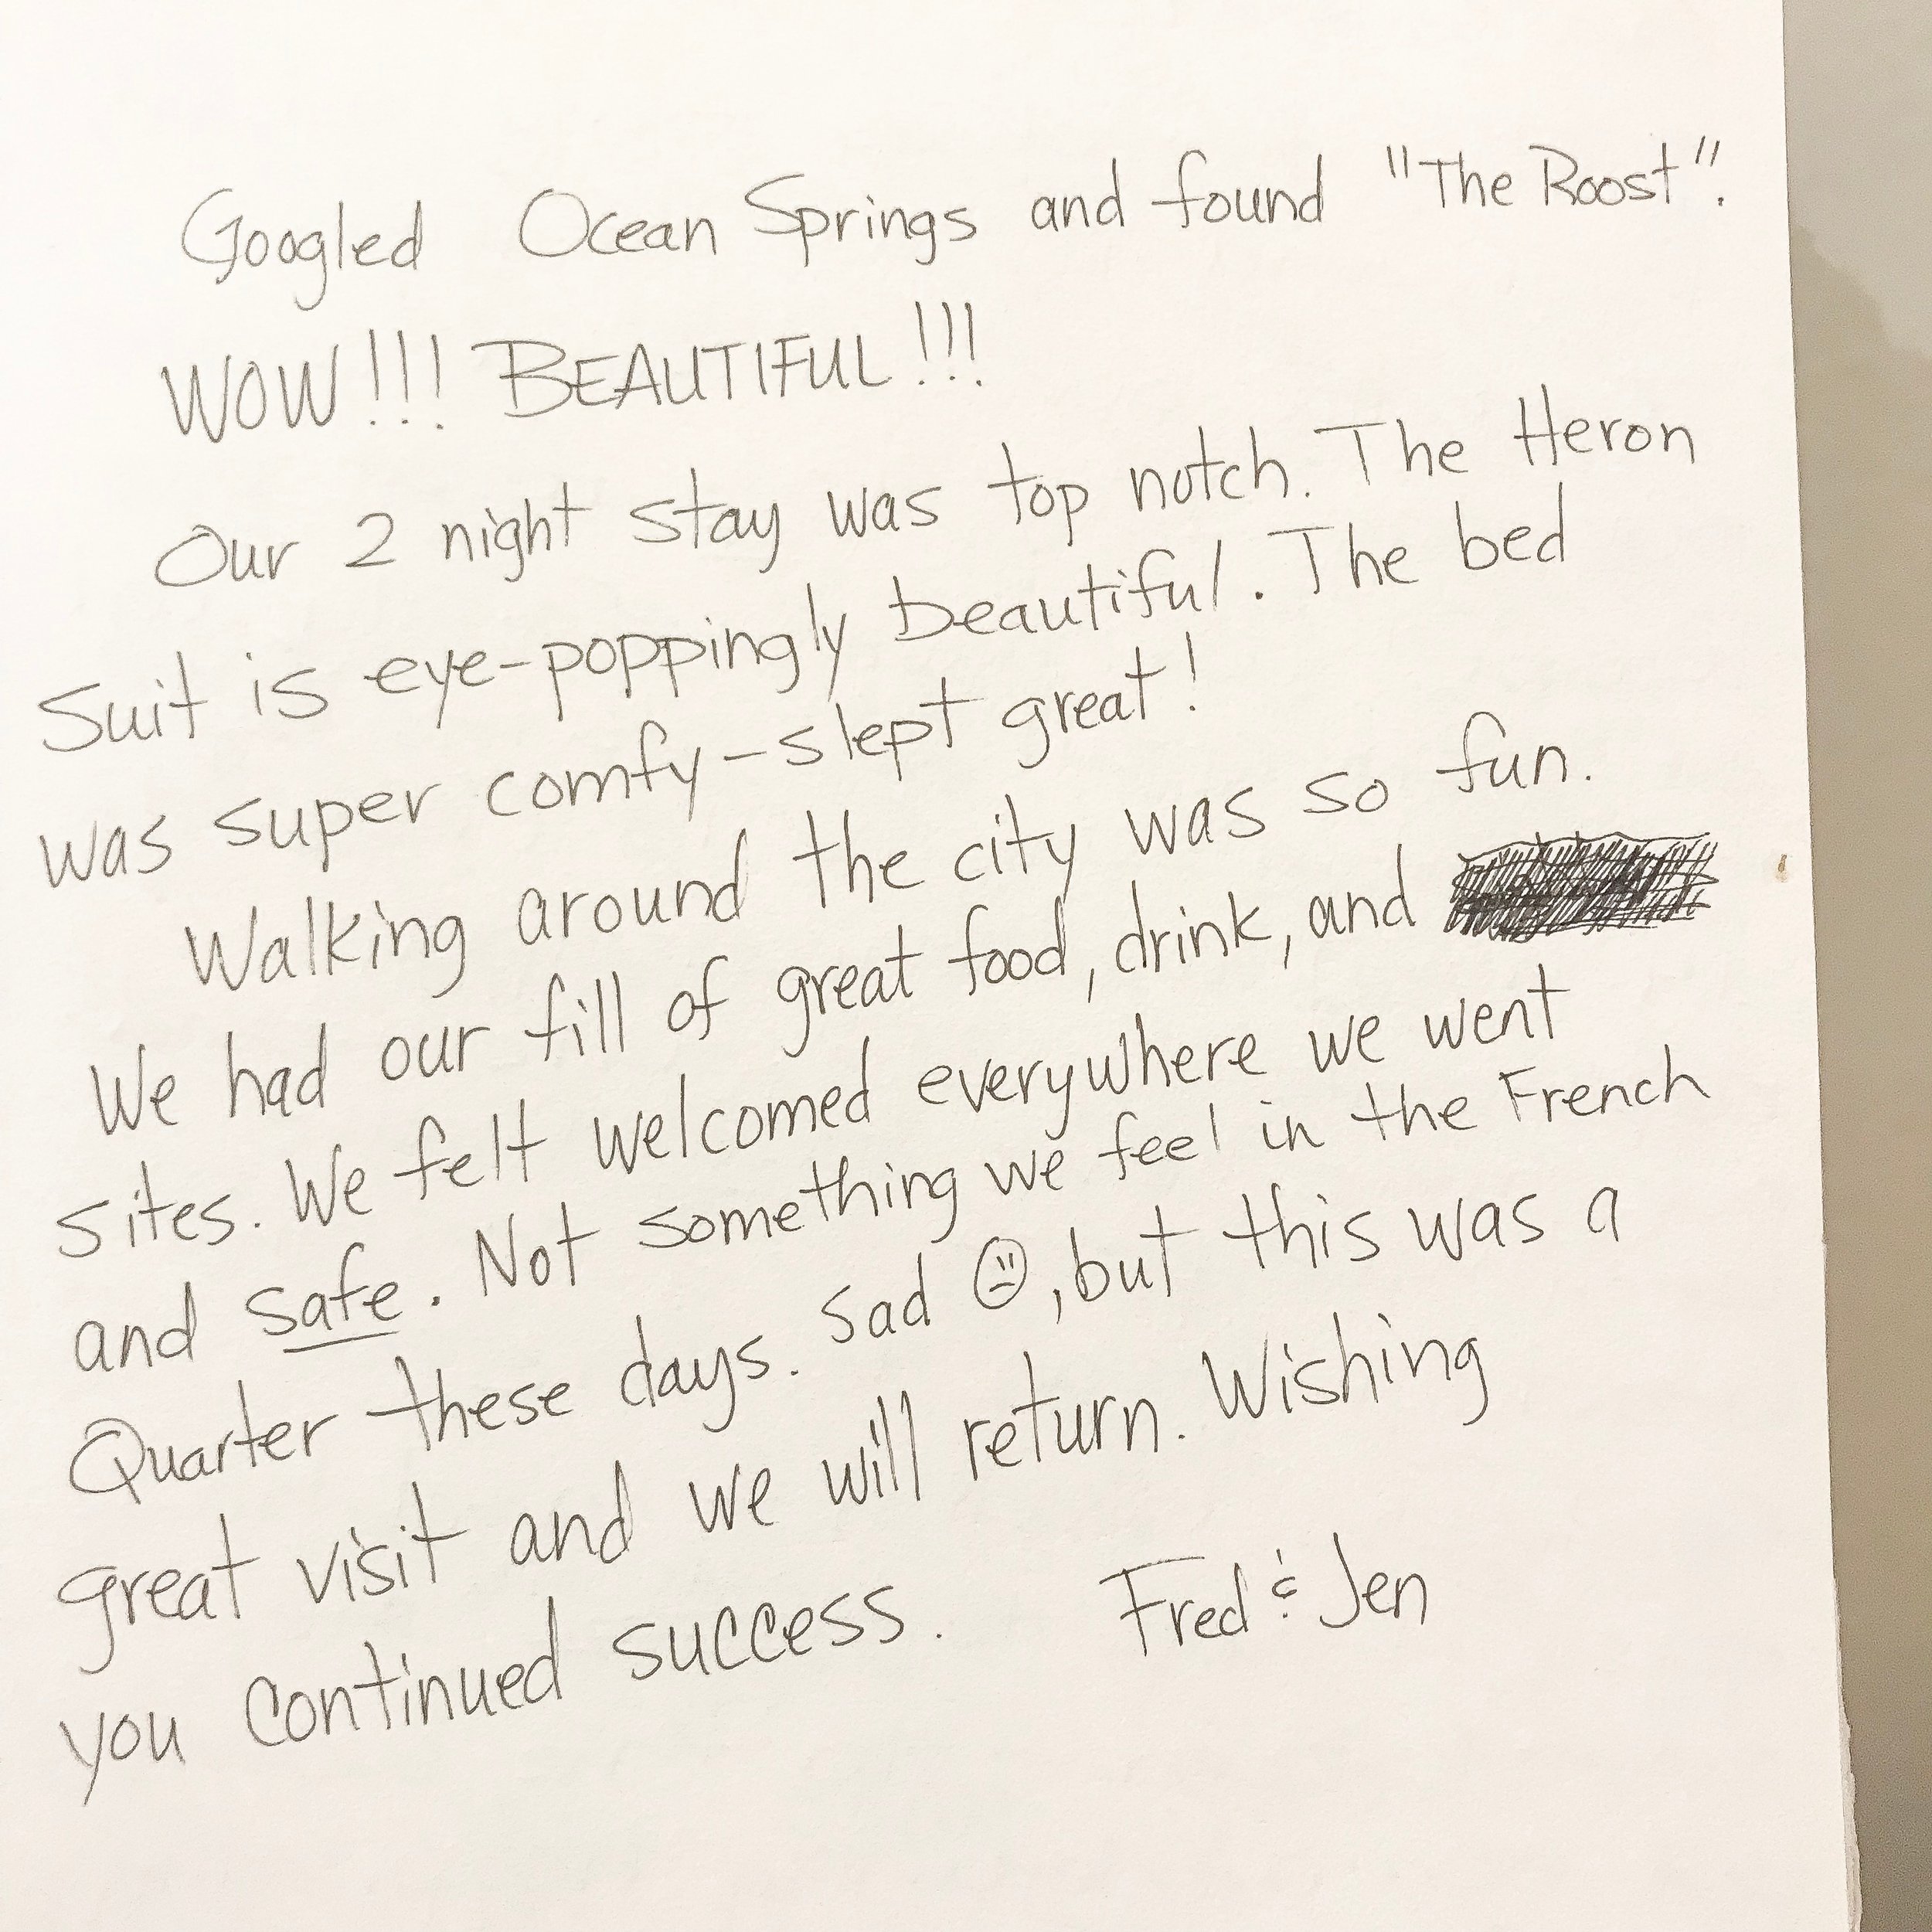 Googled Ocean Springs and found "The Roost".
WOW!!! BEAUTIFUL!!!
Our 2 night stay was top notch. The Heron
Suit is eye-poppingly beautiful. The bed
was super comfy-slept great!
Walking around the city was so fun.
We had our fill of great food, drink, and
sites. We felt welcomed everywhere we went
and safe. Not something we feel in the French
Quarter these days. Sad ☹, but this was a
great visit and we will return. Wishing
you continued success. Fred & Jen